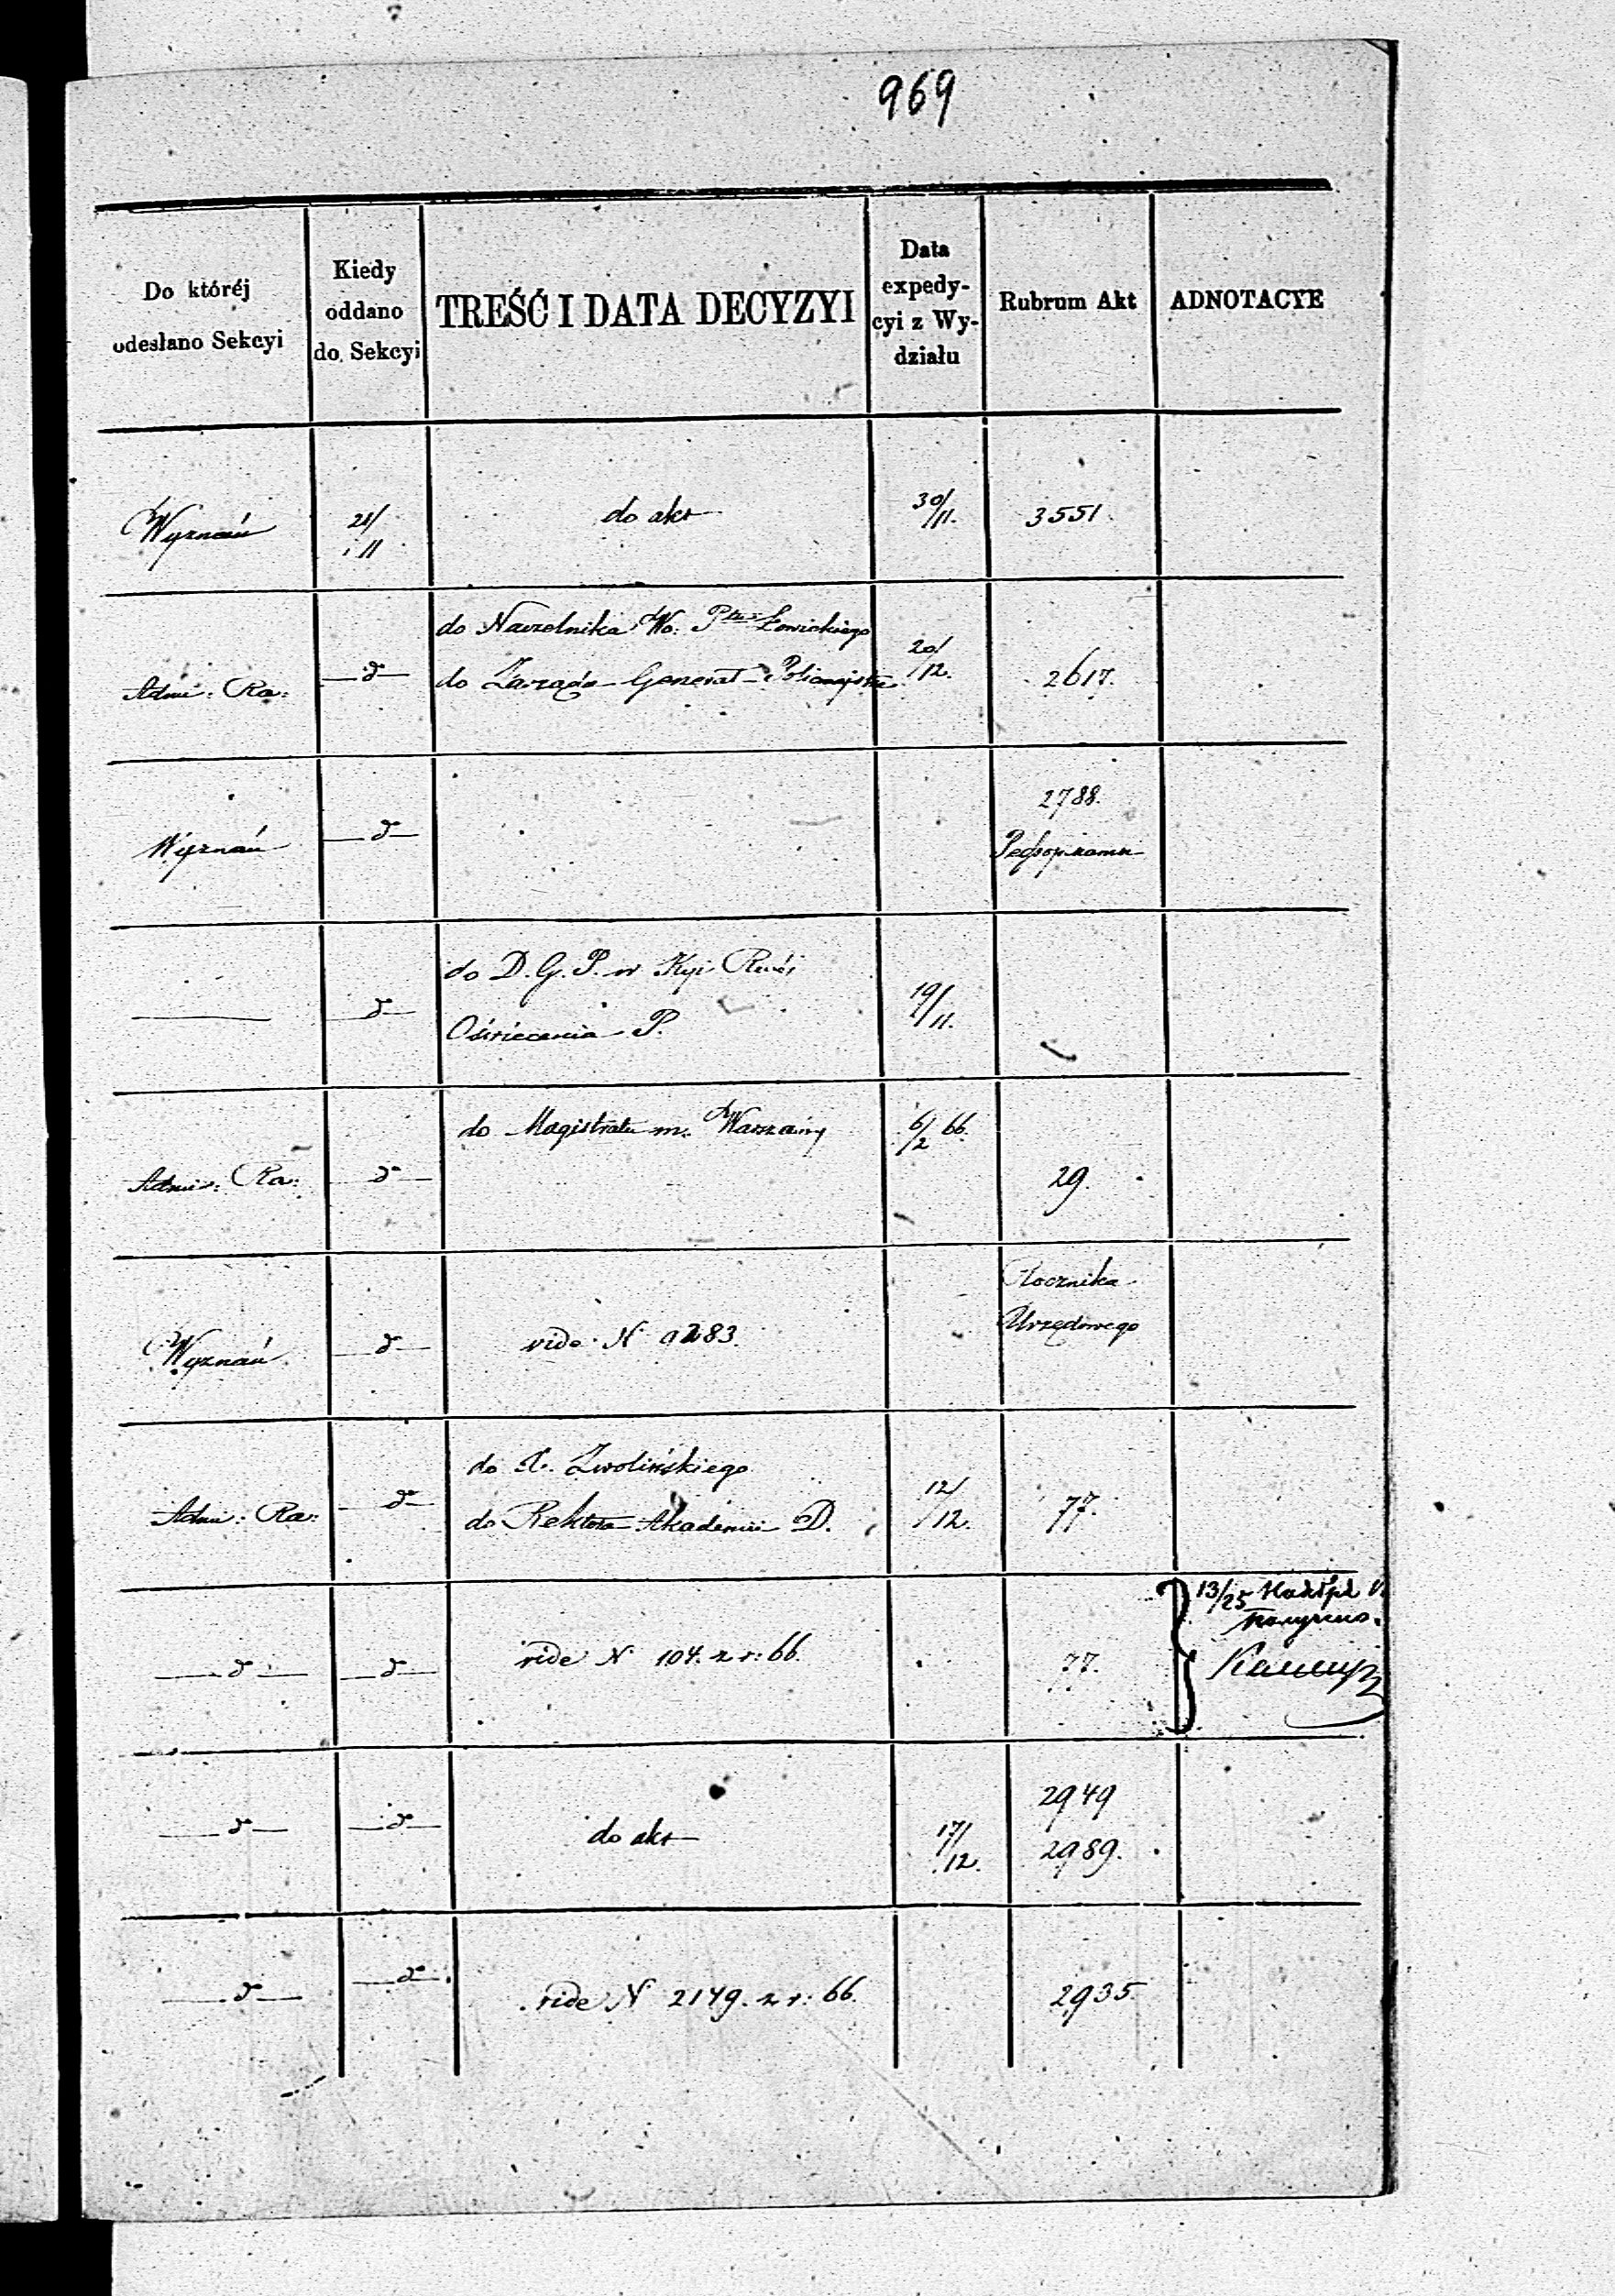 969
Do któréj
odesłano Sekcyi
Kiedy
oddano
do Sekcyi
TREŚĆ I DATA DECYZYI
Data
expedy-
cyi z Wy-
działu
Rubrum Akt
ADNOTACYE
Wyznań
21/11
do akt
30/11.
3551.
Admi: Ra:
do
do Naczelnika Wo. Ptu Łowickiego
do Zarządu Generał-Policmajstra
20/12.
2617.
Wyznań
do
2788.
do
do D. G. P. w Kyi
Oświecenia P.
19/11.
Admi: Ra:
do
do Magistratu m. Warszawy
6/2 66.
29.
Wyznań
do
vide N 9283.
Rocznika
Urzędowego
Admi: Ra:
do
do X. Zwolińskiego
do Rektora Akademii D.
12/12.
77.
do
do
vide N 104. z r: 66.
77.
13/25 Ноября
получено.
do
do
do akt
17/12.
2949
2989.
do
do
vide N 2149. z r: 66.
2935